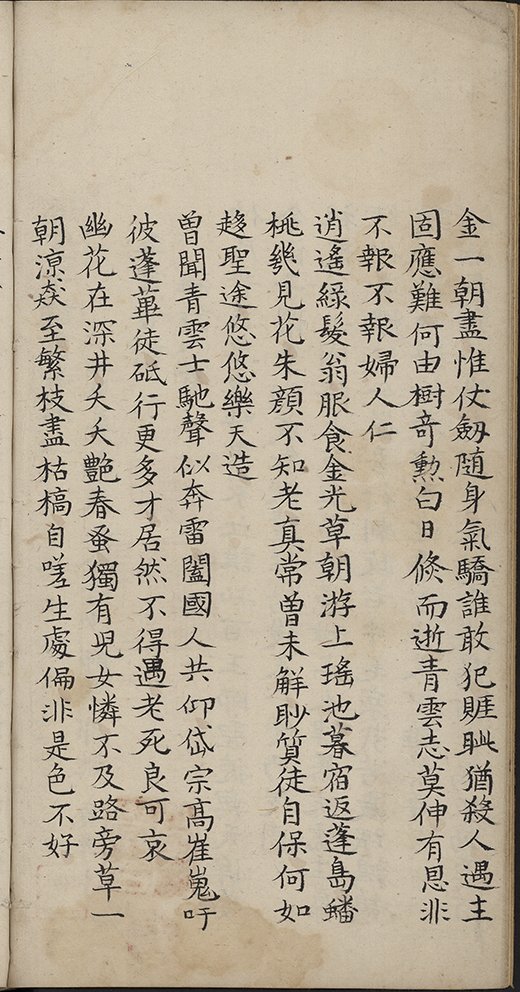 金一朝盡惟仗劔随身氣驕誰敢犯睚眦猶殺人遇主
固應難何由樹竒勲白日倏而逝青雲志莫伸有恩非
不報不報婦人仁
逍遙緑髮翁服食金光草朝游上瑤池暮宿返蓬島蟠
桃幾見花朱顔不知老真常曾未解眇質徒自保何如
趍聖途悠悠樂天造
曾聞青雲士馳聲似奔雷闔國人共仰岱宗高崔嵬吁
彼蓬蓽徒砥行更多才居然不得遇老死良可哀
幽花在深井夭夭艷春蚤獨有兒女憐不及路旁草一
朝涼猋至繁枝盡枯槁自嗟生處偏非是色不好